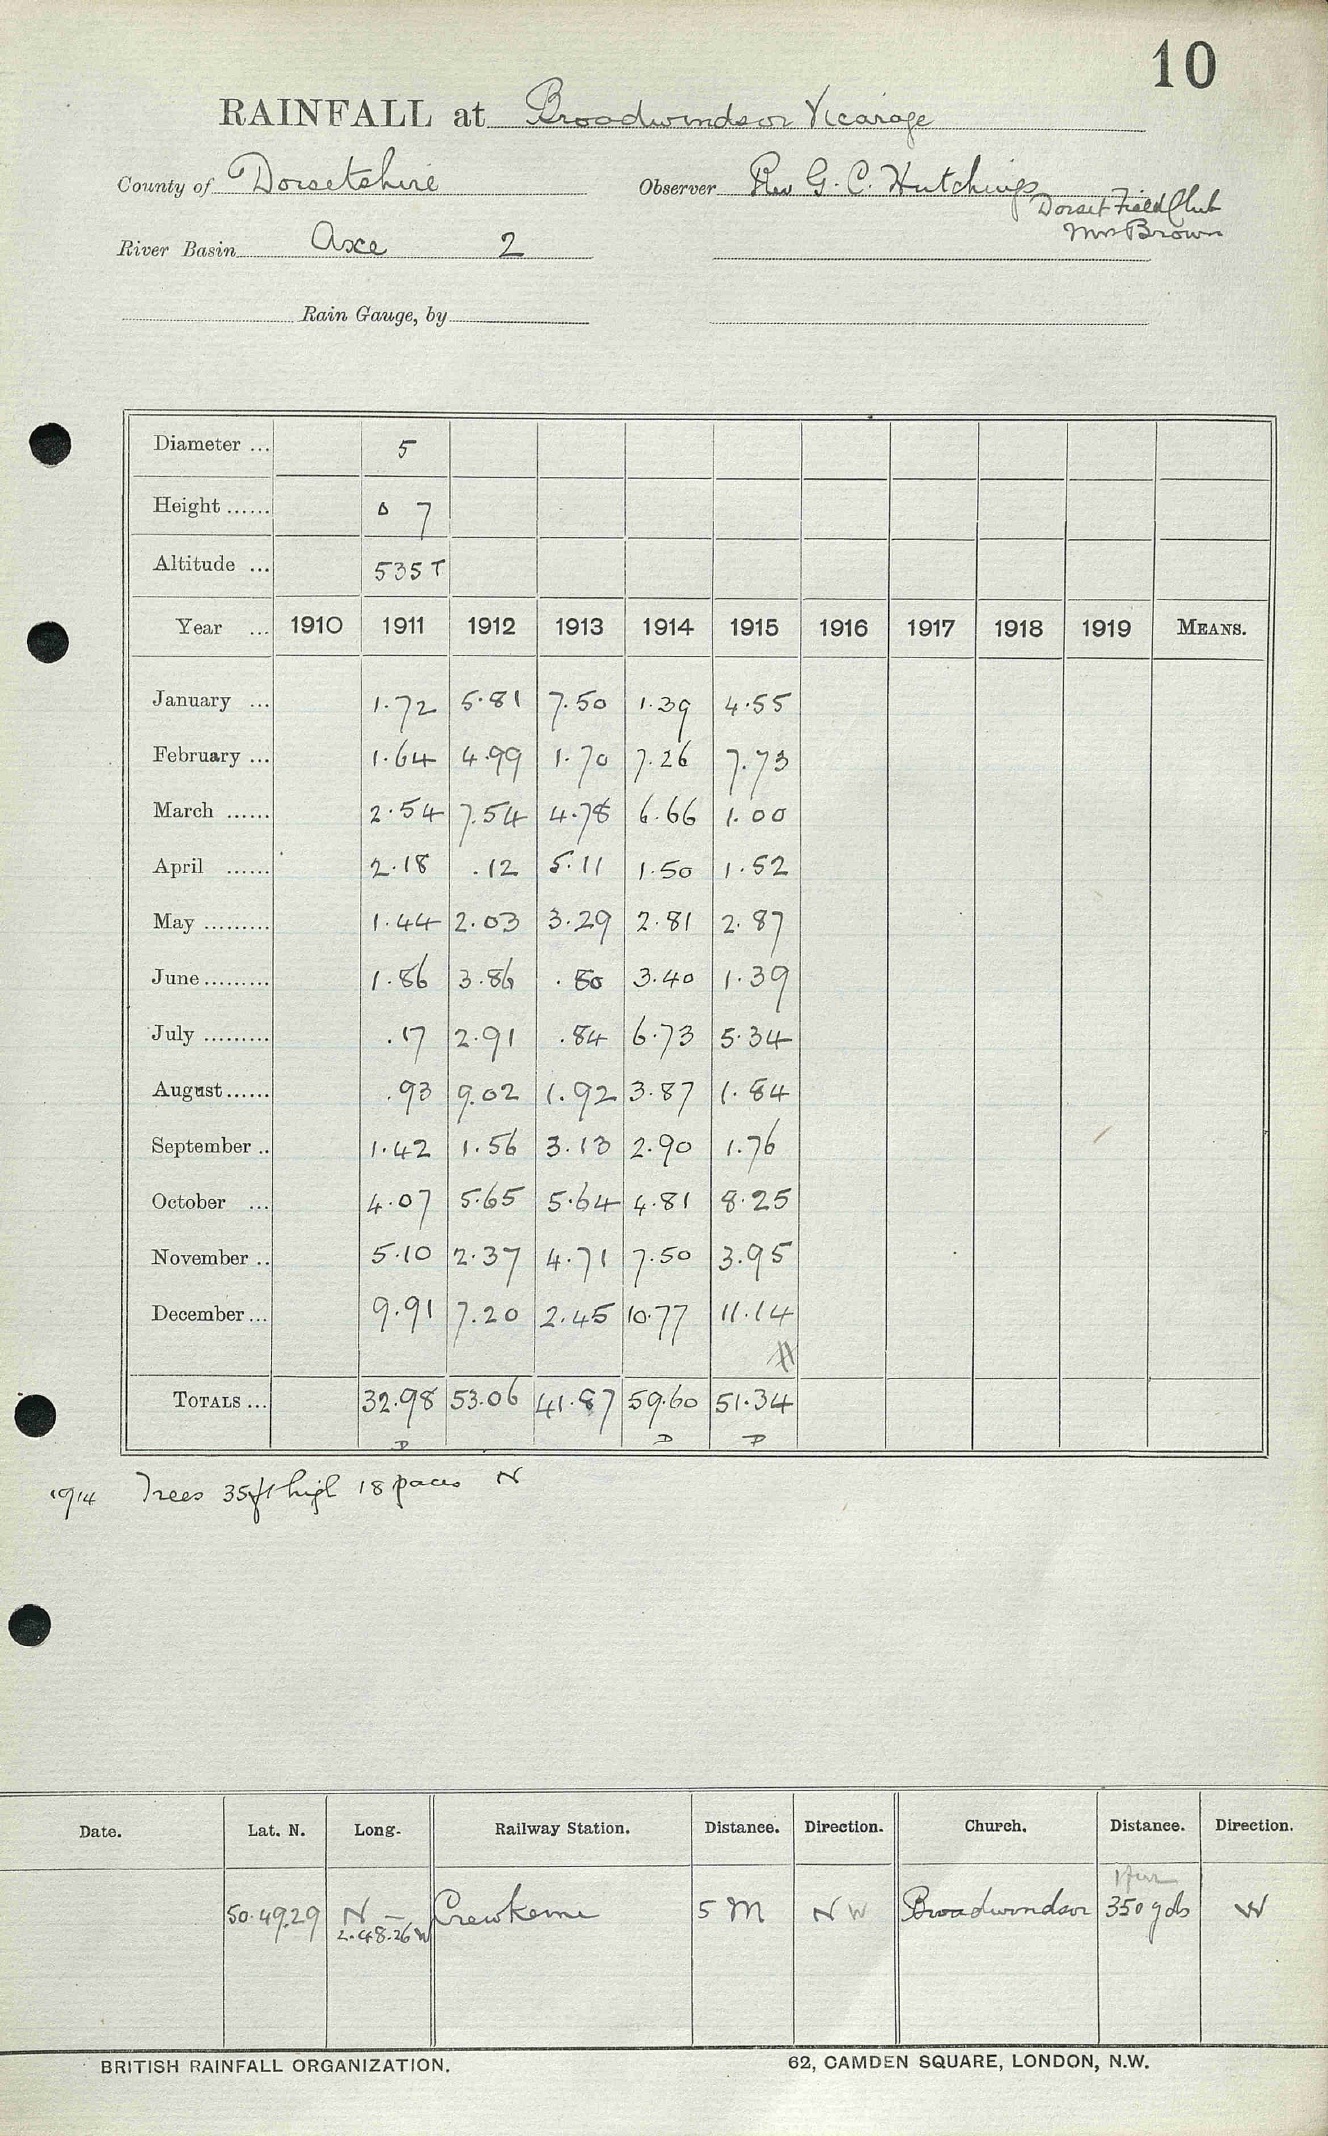 10
RAINFALL at Broadwindsor Vicarage
County of Dorsetshire Observer Rev G. C. Hutchings
Dorset Field Club
River Basin Axe 2 Mr Brown
Rain Gauge, by
Diameter ... 5
Height ...... 0 7
Altitude ... 535 T
Year ... 1910 1911 1912 1913 1914 1915 1916 1917 1918 1919 MEANS.
January ... 1.72 5.81 7.50 1.39 4.55
February ... 1.64 4.99 1.70 7.26 7.73
March ...... 2.54 7.54 4.78 6.66 1.00
April ...... 2.18 .12 5.11 1.50 1.52
May ......... 1.44 2.03 3.29 2.81 2.87
June ......... 1.86 3.86 .80 3.40 1.39
July ......... .17 2.91 .84 6.73 5.34
August ...... .93 9.02 1.92 3.87 1.84
September .. 1.42 1.56 3.13 2.90 1.76
October ... 4.07 5.65 5.64 4.81 8.25
November .. 5.10 2.37 4.71 7.50 3.95
December ... 9.91 7.20 2.45 10.77 11.14
TOTALS ... 32.98 53.06 41.87 59.60 51.34
D D D
1914 Trees 35ft high 18 paces N
Date. Lat. N. Long. Railway Station. Distance. Direction. Church. Distance. Direction.
1 fur
50.49.29 N — Crewkerne 5 M N W Broadwindsor 350 yds W
2.48.26 W
BRITISH RAINFALL ORGANIZATION. 62, CAMDEN SQUARE, LONDON, N.W.